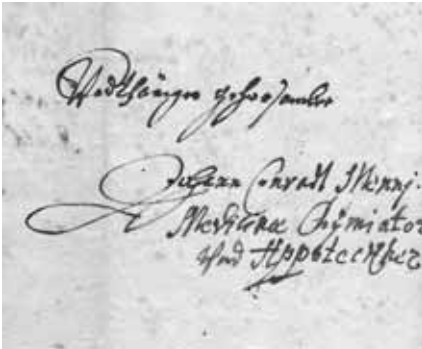 Vndthäniger gehorsamber
Johann Conradt
Medicinae Chÿmiator
Vnd Appoteckher